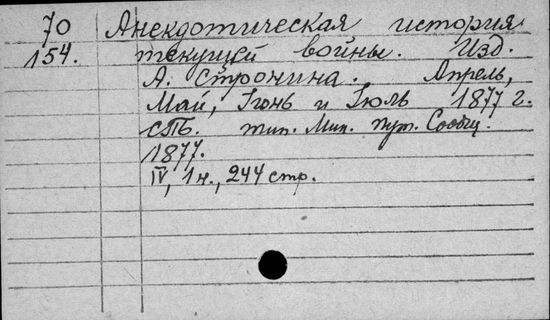 70 Анекдотическая история
154. текущей войны. Изд.
А. Стронина. Апрель,
Май, Iюнь и Iюль 1877 г.
СПб. тип. Мин. Пут. Сообщ.
1877.
IV, 1 н., 244 стр.